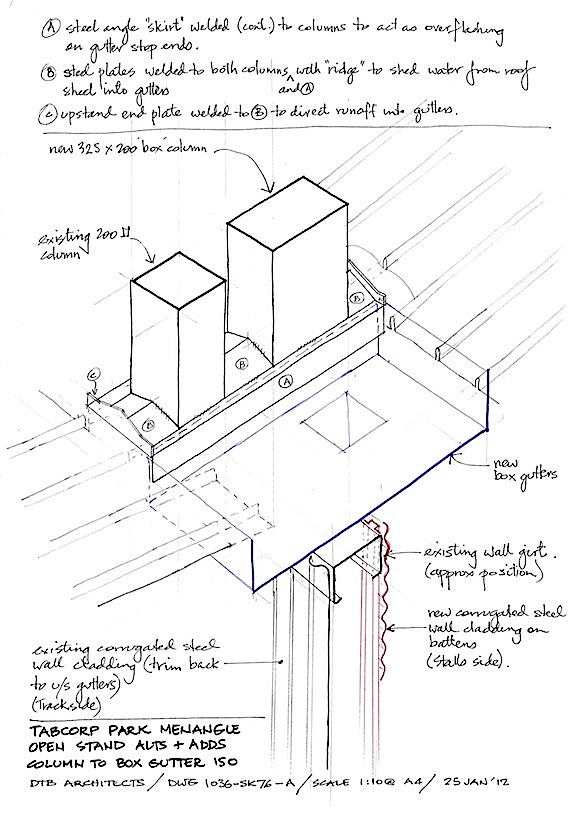 Ⓐ steel angle "skirt" welded (cont.) to columns to act as overflashing
on gutter stop ends.
Ⓑ steel plates welded to both columns and Ⓐ with "ridge" to shed water from roof
sheet into gutters
Ⓒ upstand end plate welded to Ⓑ to direct runoff into gutters.
new 325 x 200 'box' column
existing 200
column
Ⓑ
Ⓑ
Ⓐ
Ⓒ
Ⓑ
new
box gutters
existing wall girt.
(approx position)
new corrugated steel
wall cladding on
battens
(Stalls side).
existing corrugated steel
wall cladding (trim back
to u/s gutters)
(Trackside)
TABCORP PARK MENANGLE
OPEN STAND ALTS + ADDS
COLUMN TO BOX GUTTER ISO
DTB ARCHITECTS / DWG 1036-SK76-A / SCALE 1:10@ A4 / 25 JAN '12